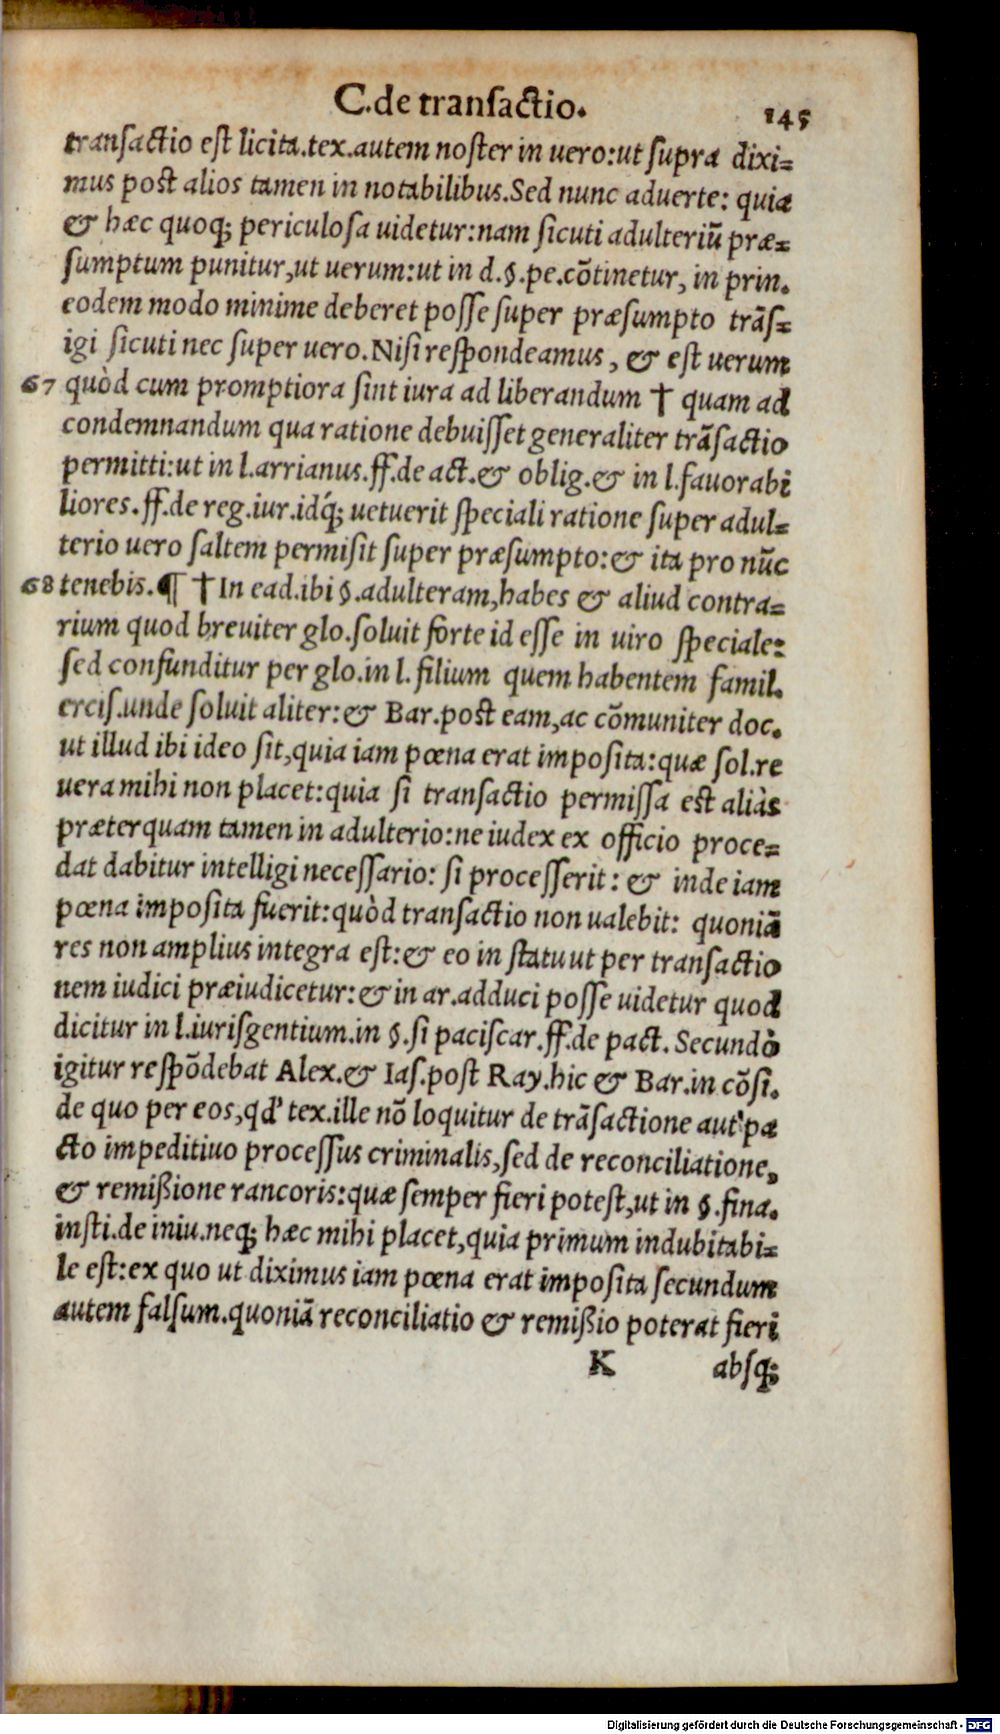 C.de transactio. 145
transactio est licita.tex.autem noster in uero:ut supra dixi=
mus post alios tamen in notabilibus.Sed nunc aduerte: quia
& hæc quoq; periculosa uidetur:nam sicuti adulteriũ præ=
sumptum punitur,ut uerum:ut in d.§.pe.cõtinetur, in prin.
eodem modo minime deberet posse super præsumpto trãs=
igi sicuti nec super uero.Nisi respondeamus, & est uerum
67 quòd cum promptiora sint iura ad liberandum † quam ad
condemnandum qua ratione debuisset generaliter trãsactio
permitti:ut in l.arrianus.ff.de act.& oblig.& in l.fauorabi
liores.ff.de reg.iur.idq́; uetuerit speciali ratione super adul=
terio uero saltem permisit super præsumpto:& ita pro nũc
68 tenebis.¶ † In ead.ibi §.adulteram,habes & aliud contra=
rium quod breuiter glo.soluit forte id esse in uiro speciale:
sed confunditur per glo.in l. filium quem habentem famil.
ercis.unde soluit aliter:& Bar.post eam,ac cõmuniter doc.
ut illud ibi ideo sit,quia iam pœna erat imposita:quæ sol.re
uera mihi non placet:quia si transactio permissa est aliàs
præterquam tamen in adulterio:ne iudex ex officio proce=
dat dabitur intelligi necessario: si processerit: & inde iam
pœna imposita fuerit:quòd transactio non ualebit: quoniã
res non amplius integra est:& eo in statu ut per transactio
nem iudici præiudicetur:& in ar.adduci posse uidetur quod
dicitur in l.iurisgentium.in §.si paciscar.ff.de pact. Secundò
igitur respõdebat Alex.& Ias.post Ray.hic & Bar.in cõsi.
de quo per eos,qd' tex.ille nõ loquitur de trãsactione aut pa
cto impeditiuo processus criminalis,sed de reconciliatione,
& remißione rancoris:quæ semper fieri potest,ut in §.fina.
insti.de iniu.neq; hæc mihi placet,quia primum indubitabi=
le est:ex quo ut diximus iam pœna erat imposita secundum
autem falsum.quoniã reconciliatio & remißio poterat fieri
K absq;
Digitalisierung gefördert durch die Deutsche Forschungsgemeinschaft - DFG